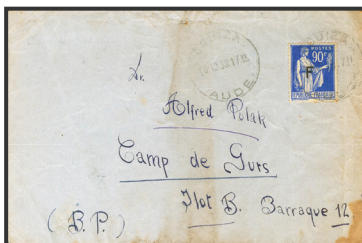 AUDE
POSTES
90c
F
Dr.
Alfred Polak
Camp de Gurs
Ilot B. Barraque 12
(B.P.)